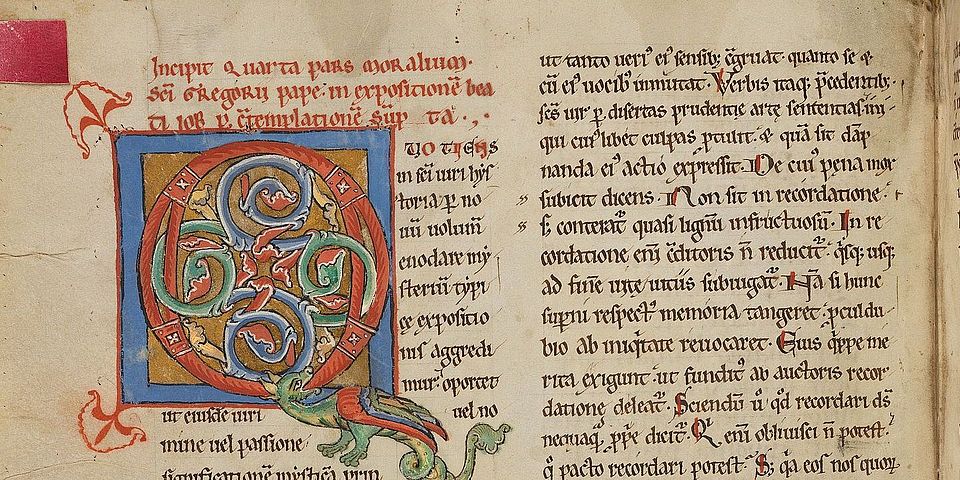 Incipit Quarta pars moralium.
Sci Gregorii pape. in expositionē bea
ti iob p̱ c̄templationē sūp ta.
UOTIENS
in sc̄i uiri hys
toria p̱ no
uū uolum̄
enodare mẏ
steriū tẏpi
ce expositio
nis aggredi
mur. oportet
ut eiusdē uiri uel no
mine uel passione
significationē mẏsticā prim
ut tanto ueri᾽ ei᾽ sensib; c̄gruat. quanto se &
cū ei᾽ uocib᾽ inmutat. Verbis itaq; p̄cedentib;
sc̄s uir p̱ disertas prudentie arte sententias. ini
qui cui᾽libet culpas p̱tulit. & quā sit dāp
nanda ei᾽ actio expressit. De cui᾽ pena mox
subicit dicens. Non sit in recordatione.
s; conterat᾽ quasi lignū infructuosū. In re
cordatione enī c̄ditoris n̄ reducit᾽. q̇sq; usq;
ad finē uite uitiis subiugat᾽. Nā si hunc
sup̱ni respect᾽ memoria tangeret. p̱culdu
bio ab iniq̇tate reuocaret. Eius q̇ppe me
rita exigunt. ut fundit᾽ ab auctoris recor
datione deleat᾽. Sciendū u᾽ qd recordari ds̄
nequaq̄ p̱p̱e dicit᾽. Q enī obliuisci n̄ potest.
q̊ pacto recordari potest. S; q̇a eos nos quor᾽